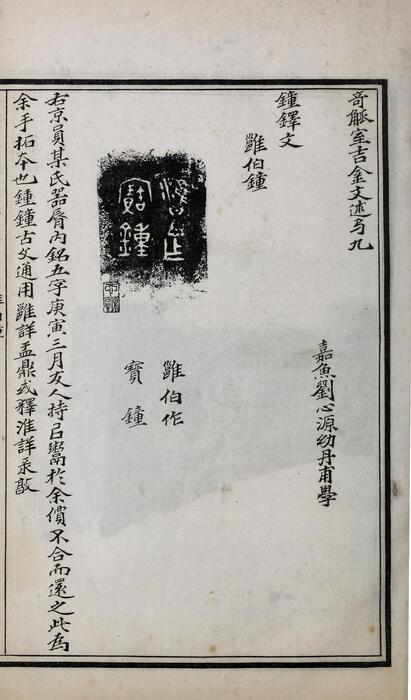 奇觚室吉金文述弓九
嘉魚劉心源幼丹甫學
鐘鐸文
雝伯鐘
雝伯作
寶鐘
右京員某氏器脣內銘五字庚寅三月友人持已鬻於余價不合而還之此為
余手拓本也鍾鐘古文通用雝詳盂鼎或釋淮詳彔𣪘